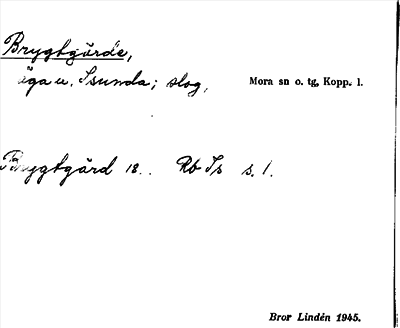 Brygtgärde,
äga u. Isunda; slog, Mora sn o. tg, Kopp. l.
Brygtgärd 18.. Rb Is s. 1.
Bror Lindén 1945.